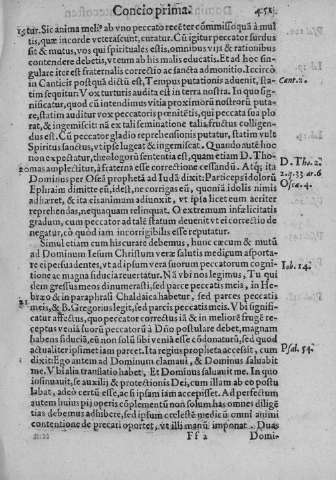 Concio prima.
igitur. Sic anima meliꝰ ab vno peccato recẽter cõmisso quã à mul
tis, quæ incorde veterascunt, curatur. Cũ igitur peccator surdus
sit & mutus, vos qui spirituales estis, omnibus vijs & rationibus
contendere debetis, vt eum ab his malis educatis. Et ad hoc sin-
gulare iter est fraternalis correctio ac sancta admonitio. Idcirco
in Canticis postquã dictũ est, Tempus putationis aduenit, sta-
tim sequitur Vox turturis audita est in terra nostra. In quo sig-
nificatur, quod cũ intendimus vitia proximorũ nostrorũ puta-
re, statim auditur vox peccatoris pœnitẽtis, qui peccata sua plo
rat, & ingemiscit: nã ex tali seminatione talis fructus colligen-
dus est. Cũ peccator gladio reprehensionis putatur, statim vult
Spiritus sanctus, vt ipse lugeat & ingemiscat. Quando autẽ hoc
non expectatur, theologorũ sententia est, quam etiam D. Tho-
mas amplectitur, à fraterna esse correctione cessandũ. Atq; ita
Dominus per Oseã prophetã ad Iudã dixit. Particeps idolorũ
Ephraim dimitte eũ, id est, ne corrigas eũ, quoniã idolis nimis
adhæret, & ita eis animum adiunxit, vt ipsa licet eum acriter
reprehendas, nequaquam relinquat. O extremum infœlicitatis
gradum, cum peccator ad talẽ statum deuenit vt ei correctio de
negatur, cò quòd iam incorrigibilis esse reputatur.
Simul etiam cum his curate debemus, hunc cæcum & mutũ
ad Dominum Iesum Christum veræ salutis medicum asporta-
re ei persuadentes, vt ad ipsum vera suorum peccatorum cogni-
tione ac magna fiducia reuertatur. Nã vbi nos legimus, Tu qui
dem gressus meos dinumerasti, sed parce peccatis meis, in He-
bræo & in paraphrasi Chaldaica habetur, sed parces peccatis
meis, & B. Gregorius legit, sed parcis peccatis meis. Vbi signifi-
catur affectus, quo peccator correctus iã & in meliorẽ frugẽ re-
ceptus veniã suorũ peccatorũ à Dño postulare debet, magnam
habens fiduciã, eũ non solũ sibi venia esse cõdonaturũ, sed quod
actualiter ipsimet iam parcet. Ita regius propheta accessit, cum
dixit: Ego autem ad Dominum clamaui, & Dominus saluabit
me. Vbi alia translatio habet, Et Dominus saluauit me. In quo
insinuauit, se auxilij & protectionis Dei, cum illam ab eo postu
labat, adeò certũ esse, ac si ipsam iam accepisset. Ad perfectum
autem huius pij operis cõplementũ non solum has omnes diligẽ
tias debemus adhibere, sed ipsum cœleste medicũ omni animi
contentione de precari oportet, vt illi manũ imponat. Duas
Ff 2 Domi-
Cant. 2.
D. Tho. 2.
2. q. 33. ar. 6
Osea. 4.
Iob. 14.
Psal. 54.